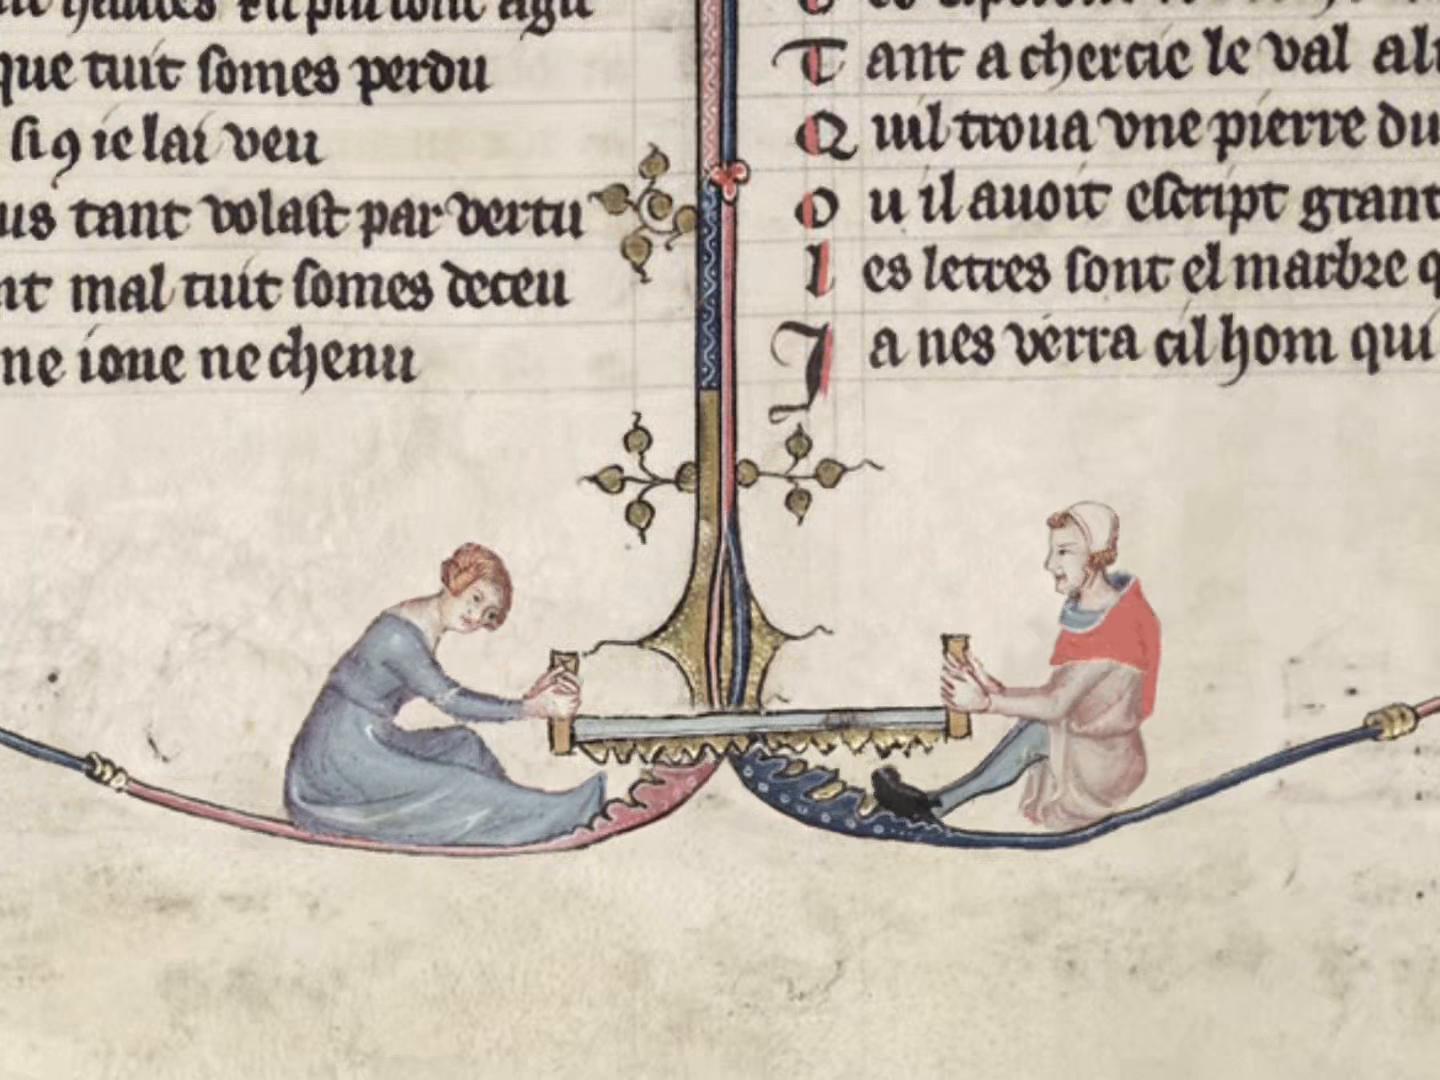 que tuit somes perdu
si q̃ ie lai veu
us tant volast par vertu
nt mal tuit somes deceu
ne ione ne chenu
Tant a chercie le val
Quil troua vne pierre du
Ou il auoit escript grant
Les letres sont el marbre q
Ja nes verra cil hom qui